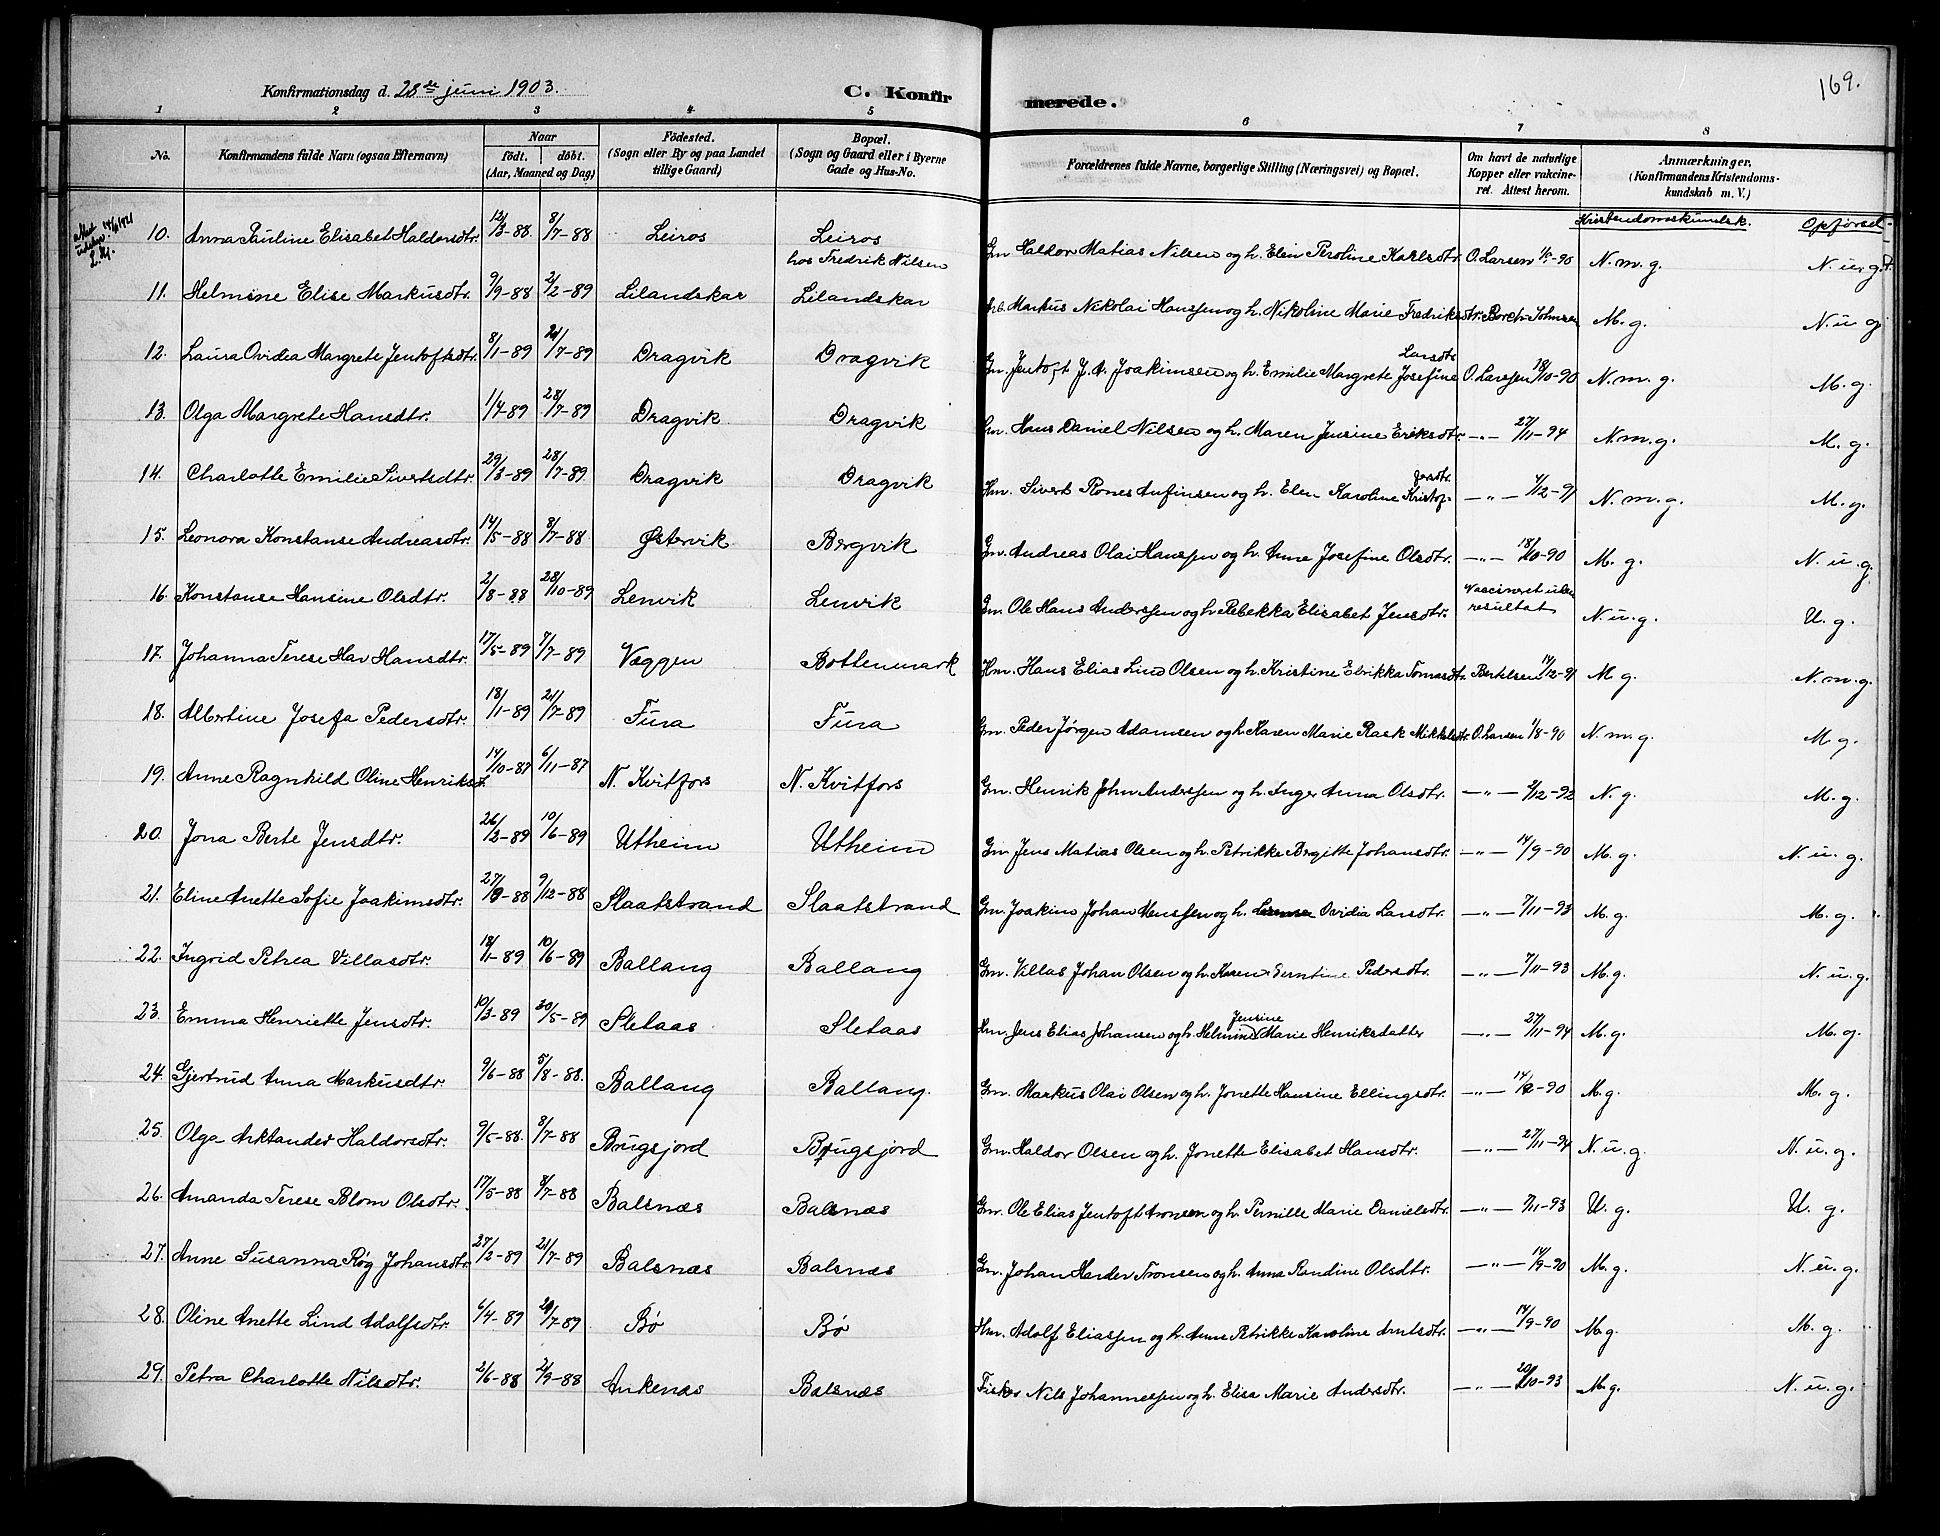 169.
Konfirmationsdag d. 28de juni 1903.
C. Konfir merede.
1 2 3 4 5 6 7 8
No. Konfirmandens fulde Navn (ogsaa Efternavn) Naar født. døbt. (Aar, Maaned og Dag) Födested. (Sogn eller By og paa Landet tillige Gaard) Bopæl. (Sogn og Gaard eller i Byerne Gade og Hus-No. Forældrenes fulde Navne, borgerlige Stilling (Næringsvei) og Bopæl. Om havt de naturlige Kopper eller vakcineret. Attest herom. Anmærkninger. (Konfirmandens Kristendomskundskab m. V.)
Kristendomskundsk. Opførsel
10. Anna Pauline Elisabet Haldorsdtr. 12/3-88 8/7-88 Leiros Leiros hos Fredrik Nilsen Gm Haldor Matias Nilsen og h. Elen Peroline Karlsdtr. O. Larsen N. m. g. N. u. g.
11. Helmine Elise Markusdtr. 9/9-88 2/2-89 Lilandskar Lilandskar Markus Nikolai Hanssen og h. Nikoline Marie Fredriksdtr. Borch-Johnsen M. g. N. u. g.
12. Laura Ovidea Margrete Jentoftsdtr. 8/1-89 21/7-89 Dragvik Dragvik Gm. Jentoft J. A. Joakimsen og h. Emilie Margrete Josefine Larsdtr O. Larssen 18/10-90 N. m. g. M. g.
13. Olga Margrete Hansdtr. 1/4-89 28/7-89 Dragvik Dragvik Hans Daniel Nilsen og h. Maren Jensine Eriksdtr. —"— 27/11-94 N. m. g. M. g.
14. Charlotte Emilie Sivertsdtr. 29/3-89 28/7-89 Dragvik Dragvik Hm. Sivert Rones Anfinsen og h. Elen Karoline Kristofersdtr. —"— 4/12-91 N. m. g. M. g.
15. Leonora Konstanse Andreasdtr. 14/5-88 8/7-88 Østervik Bergvik Gm. Andreas Olai Hanssen og h. Anne Josefine Olsdtr. —"— 18/10-90 M. g. N. u. g.
16. Konstanse Hansine Olsdtr. 2/8-88 28/10-89 Lenvik Lenvik Gm. Ole Hans Anderssen og h. Rebekka Elisabet Jensdtr. Vaccineret uden resultat N. u. g. U. g.
17. Johanna Terese Hav Hansdtr. 17/5-89 7/7-89 Væggen Bottenmark Hm. Hans Elias Lind Olsen og h. Kristine Elrikka Tomasdtr. Bertelsen 14/12-91 M g. N. m. g.
18. Albertine Josefa Pedersdtr. 18/1-89 21/7-89 Fura Fura Gm. Peder Jørgen Adamsen og h. Karen Marie Rask Mikkelsdtr. O. Larsen 1/8-90 N. m. g. M. g.
19. Anne Ragnhild Oline Henriksd. 14/10-87 6/11-87 N. Kvitfors N. Kvitfors Gm. Henrik John Anderssen og h. Inger Anna Olsdtr. —"— 2/12-92 N. g. M. g.
20. Jona Berte Jensdtr. 26/2-89 10/6-89 Utheim Utheim Gm. Jens Matias Olsen og h. Petrikke Bergitte Johansdtr. —"— 14/9-90 M. g. N. u. g.
21. Eline Anette Sofie Joakimsdtr. 27/9-88 9/12-88 Slaatstrand Slaatstrand Gm. Joakim Johan Henssen og h. Ovidia Larsdtr. —"— 7/11-93 M. g. M. g.
22. Ingrid Petrea Villasdtr. 18/1-89 10/6-89 Ballang Ballang Gm. Villas Johan Olsen og h. Karen Berntine Pedersdtr. —"— 7/11-93 M. g. N. u. g.
23. Emma Henriette Jensdtr. 10/3-89 30/5-89 Sletaas Sletaas Hm. Jens Elias Johansen og h. Helmine Jensine Marie Henriksdatter —"— 27/11-94 M. g. M. g.
24. Gjertrud Anna Markusdtr. 9/6-88 5/8-88. Ballang Ballang. Gm. Markus Olai Olsen og h. Jonette Hansine Ellingsdtr. —"— 14/9-90 M. g. M. g.
25. Olga Arktander Haldorsdtr. 9/5-88. 8/7-88 Brugsjord Brugsjord Gm. Haldor Olsen og h. Jonette Elisabet Hansdtr. —"— 27/11-94 N. u. g. N. u. g.
26. Amanda Terese Blom Olsdtr. 17/5-88 8/7-88 Balsnæs Balsnæs Gm. Ole Elias Jentoft Aronsen og h. Pernille Marie Danielsdtr. —"— 7/11-93 U. g. U. g.
27. Anne Susanna Røg Johansdtr. 27/2-89 21/7-89 Balsnæs Balsnæs Gm. Johan Harder Tronsen og h. Anna Randine Olsdtr. —"— 14/9-90 M. g. N. u. g.
28. Oline Anette Lind Adolfsdtr. 6/4-89 21/7-89 Bø Bø Hm. Adolf Eliassen og h. Anne Petrikke Karoline Arntsdtr. —"— 14/9-90 M. g. M. g.
29. Petra Charlotte Nilsdtr. 2/6-88 2/9-88 Ankenæs Balsnæs Fisker Nils Johannessen og h. Elisa Marie Andersdtr. —"— 20/10-93 M. g. N. u. g.